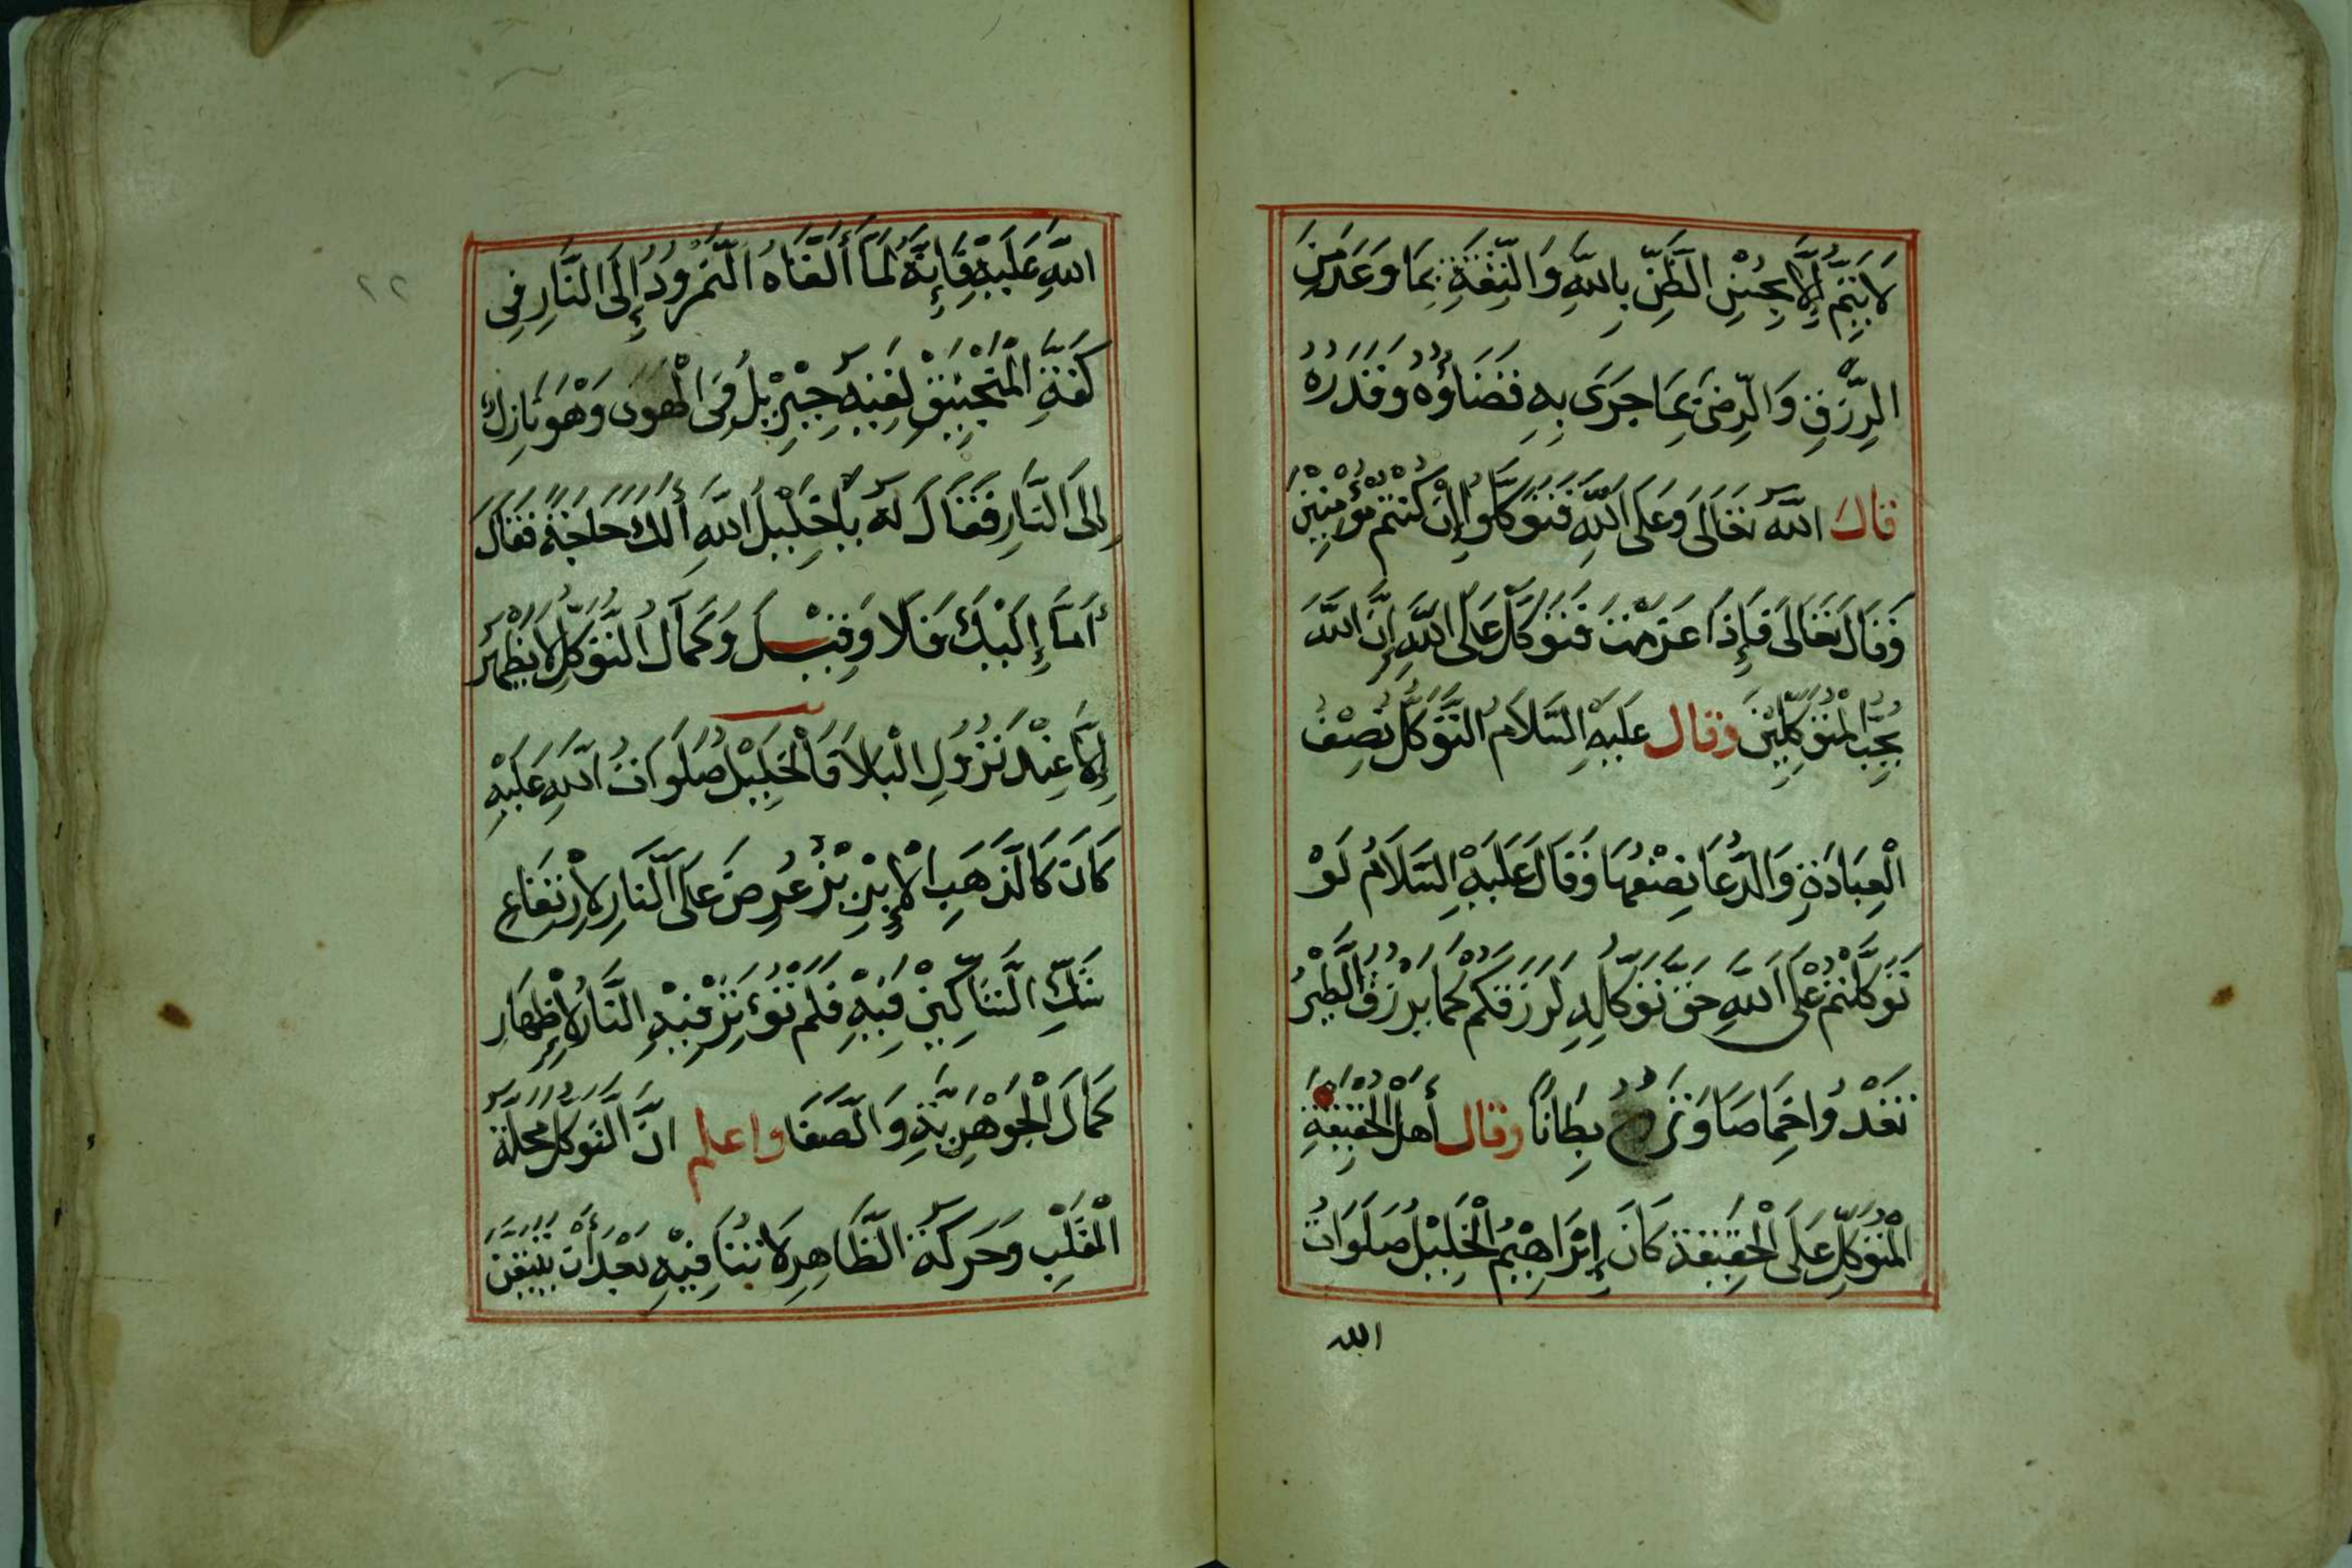 لَا يَتِمُّ إِلَّا بِحُسْنِ الظَّنِّ بِاللّٰهِ وَالثِّقَةِ بِمَا وَعَدَ مِنَ
الرِّزْقِ وَالرِّضَى بِمَا جَرَى بِهِ قَضَاؤُهُ وَقَدَرُهُ
قال اللّٰه تَعَالَى وَعَلَى اللّٰهِ فَتَوَكَّلُوا إِنْ كُنْتُمْ مُؤْمِنِينَ
وَقَالَ تَعَالَى فَإِذَا عَزَمْتَ فَتَوَكَّلْ عَلَى اللّٰهِ إِنَّ اللّٰهَ
يُحِبُّ الْمُتَوَكِّلِيْنَ وقال عَلَيْهِ السَّلَامُ التَّوَكُّلُ نِصْفُ
الْعِبَادَةِ وَالدُّعَا نِصْفُهَا وَقَالَ عَلَيْهِ السَّلَامُ لَوْ
تَوَكَّلْتُمْ عَلَى اللّٰهِ حَقَّ تَوَكُّلِهِ لَرَزَقَكُمْ كَمَا يَرْزُقُ الطَّيْرُ
تَغْدُوا خِمَاصًا وَتَرُوحُ بِطَانًا وقال أَهْلُ الْحَقِيقَةِ
الْمُتَوَكِّلُ عَلَى الْحَقِيقَةِ كَانَ إِبْرَاهِيْمُ الْخَلِيْلُ صَلَوَاتُ
الله
٢٢
اللّٰهِ عَلَيْهِ فَإِنَّهُ لَمَّا أَلْقَاهُ النُّمْرُودُ إِلَى النَّارِ فِي
كَفَّةِ الْمَنْجَنِيْقِ لَقِيَهُ جِبْرِيْلُ فِي الْهَوَى وَهْوَ نَازِلٌ
إِلَى النَّارِ فَقَالَ لَهُ يَا خَلِيْلَ اللّٰهِ أَلَكَ حَاجَةٌ فَقَالَ
أَمَّا إِلَيْكَ فَلَا وَقِيْلَ وَكَمَالُ التَّوَكُّلِ لَا يَظْهَرُ
إِلَّا عِنْدَ نُزُولِ الْبَلَا فَالْخَلِيْلُ صَلَوَاتُ اللّٰهِ عَلَيْهِ
كَانَ كَالذَّهَبِ الْإِبْرِيْزِ عُرِضَ عَلَى النَّارِ لِارْتِفَاعِ
شَكِّ الشَّاكِّيْنَ فِيْهِ فَلَمْ تُؤَثِّرْ فِيْهِ النَّارُ لِإِظْهَارِ
كَمَالَ الْجَوْهَرِيَّةِ وَالصَّفَا واعلم انَّ التَّوَكُّلَ مَحَلُّهُ
الْقَلْبِ وَحَرَكَةُ الظَّاهِرِ لَا تُنَافِيْهِ بَعْدَ أَنْ يَتَيَقَّنَ